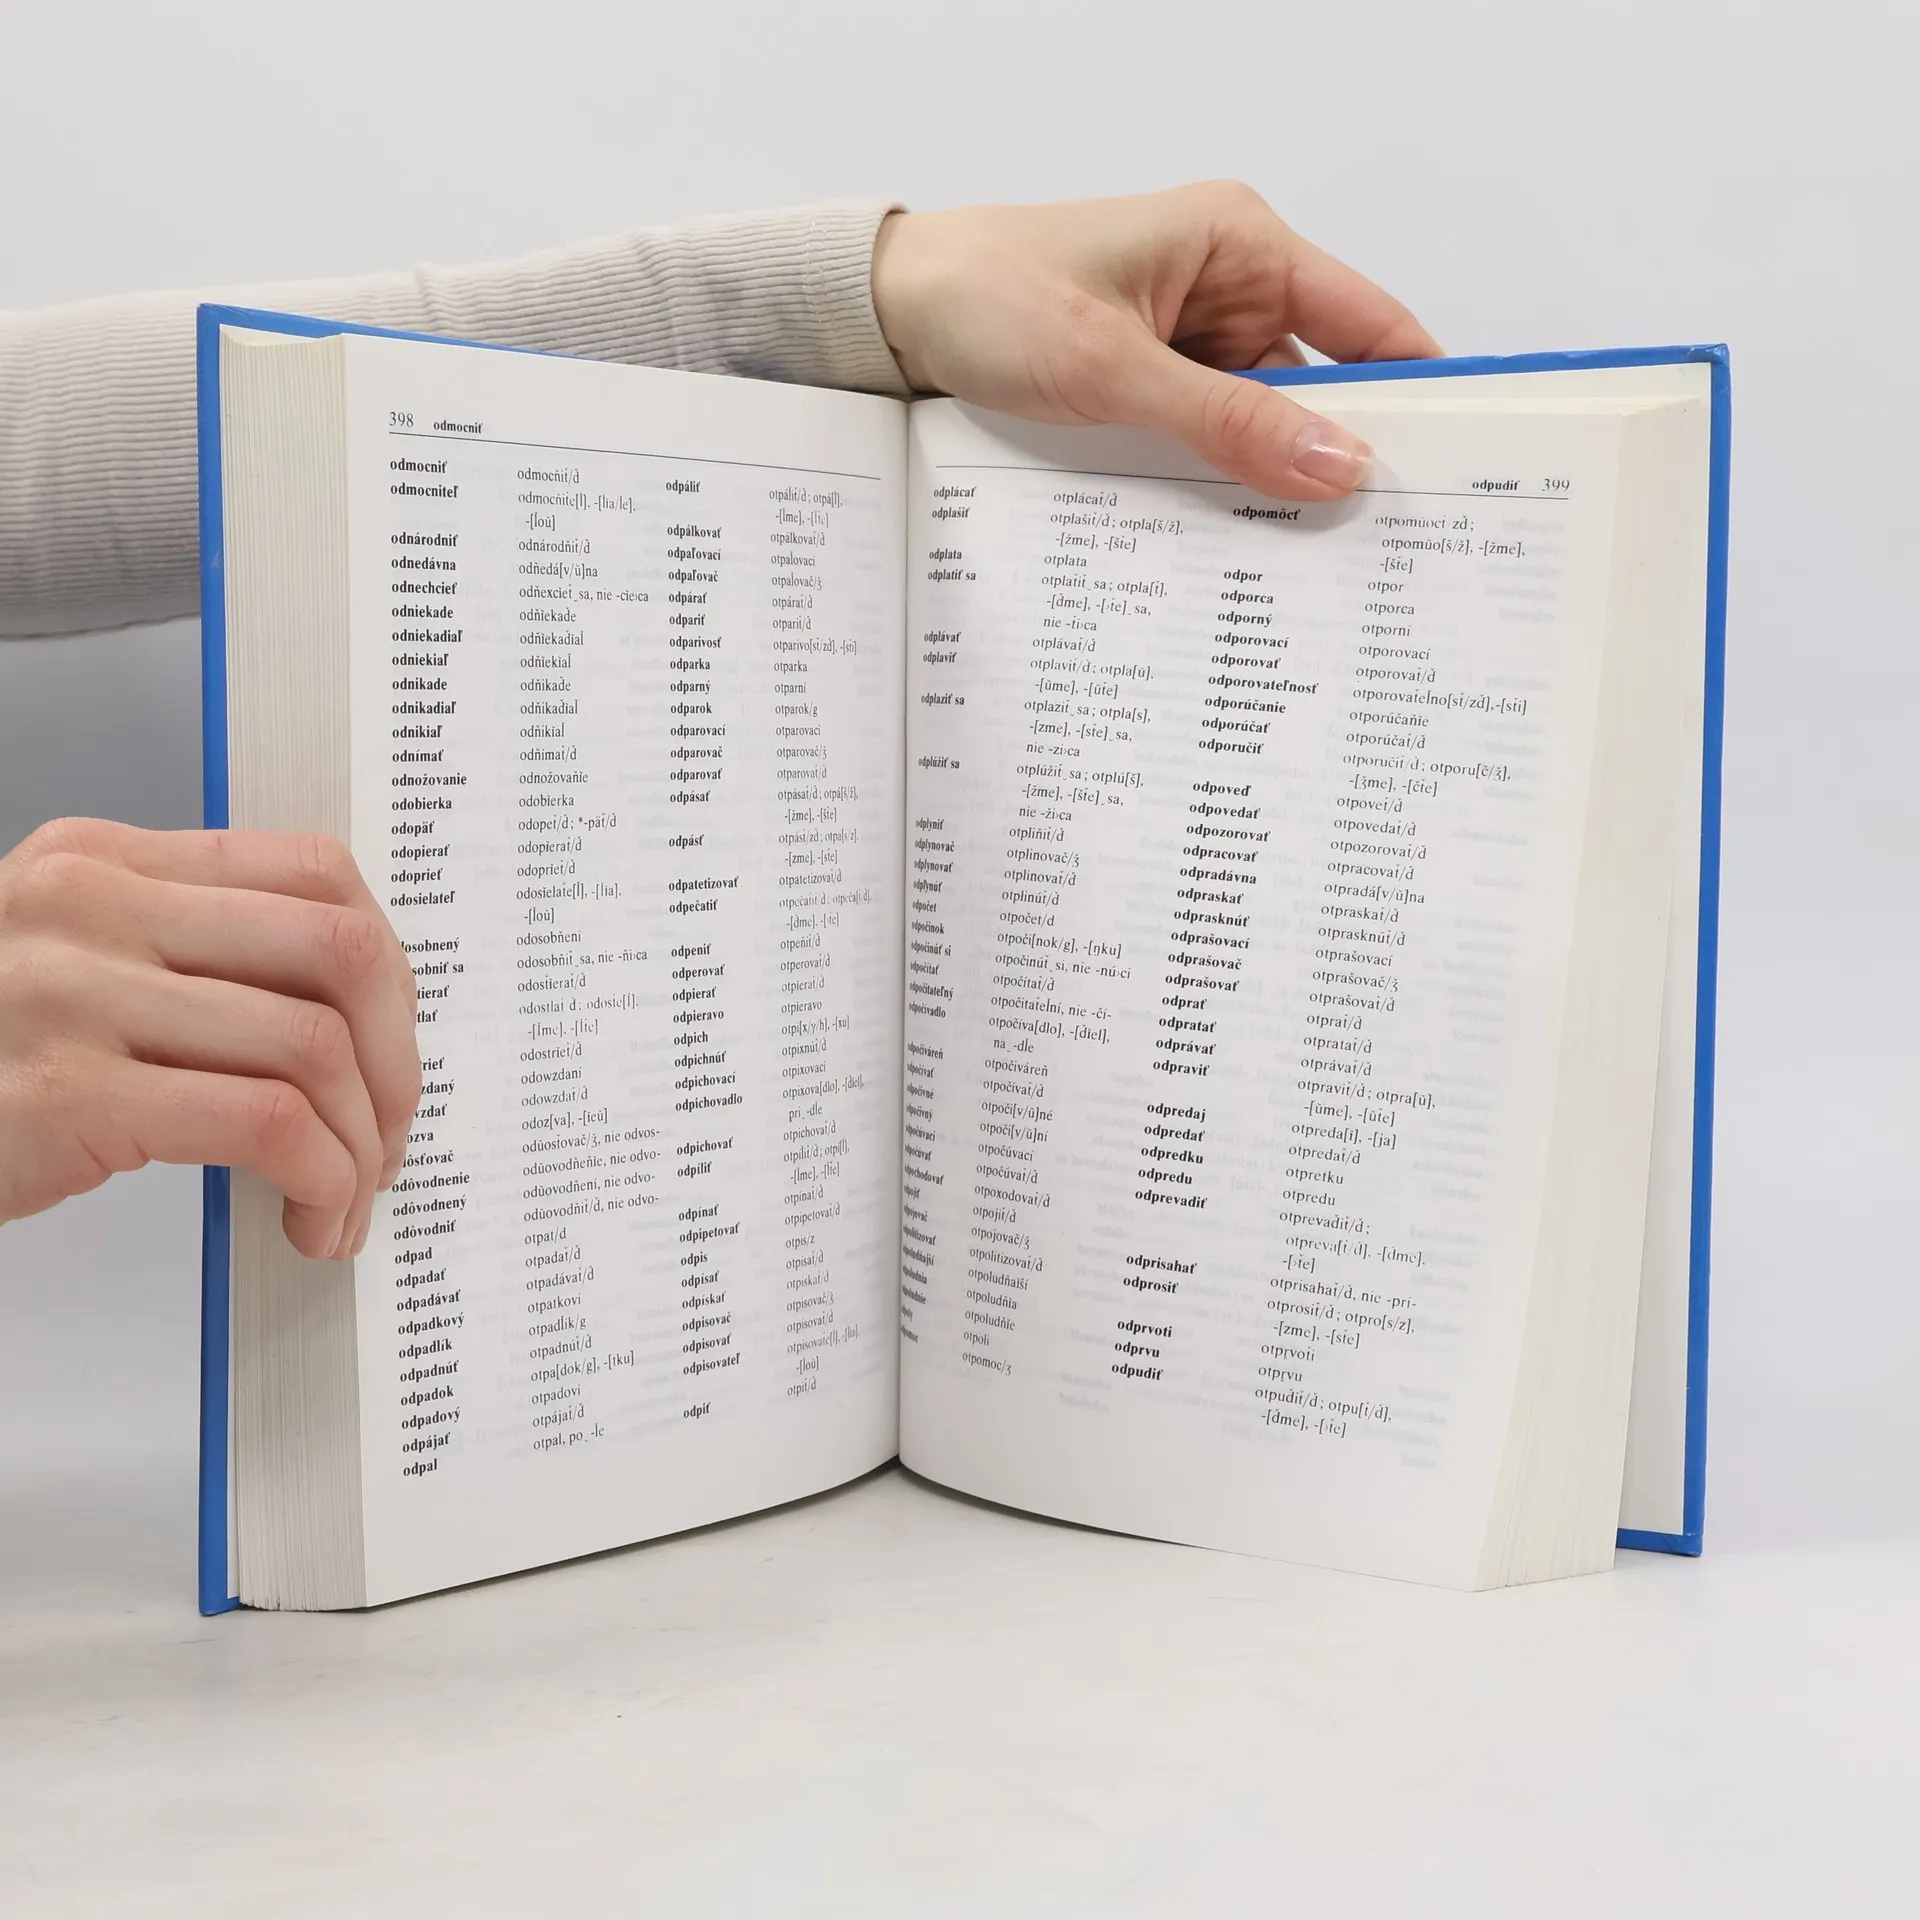 398 odmocniť
odmocniť odmocňiť/ď
odmocniteľ
-[ľoů]
odnárodniť odnárodňiť/ď
odnedávna odňedá[v/ŭ]na
odnechcieť
odniekade odňiekaďe
odniekadiaľ odňiekaďiaľ
odniekiaľ odňiekiaľ
odnikade odňikaďe
odnikadiaľ odňikaďiaľ
odnikiaľ odňikiaľ
odnímať odňímať/ď
odnožovanie odnožovaňie
odobierka odobierka
odopäť odopeť/ď; *-päť/ď
odopierať odopierať/ď
odoprieť odoprieť/ď
odosielateľ odosielaťe[ľ], -[ľia],
-[ľoů]
odosobňení
odosobňiť‿sa, nie -ňi›ca
odosťierať/ď
-[ľme], -[ľťe]
odostrieť/ď
odowzdaní
odowzdať/ď
odoz[va], -[ieŭ]
odôvodnenie
odôvodnený
odôvodniť
odpad otpat/d
odpadať otpadať/ď
odpadávať otpadávať/ď
odpadkový otpatkoví
odpadlík otpadľík/g
odpadnúť otpadnúť/ď
odpadok otpa[dok/g], -[tku]
odpadový otpadoví
odpájať otpájať/ď
odpal otpal, po‿-le
odpáliť otpáliť/ď; otpá[ľ],
-[ľme], -[ľťe]
odpálkovať otpálkovať/ď
odpaľovací otpaľovací
odpaľovač otpaľovač/ǯ
odpárať otpárať/ď
odpariť otpariť/ď
odparivosť otparivo[sť/zď], -[sťi]
odparka otparka
odparný otparní
odparok otparok/g
odparovací otparovací
odparovač otparovač/ǯ
odparovať otparovať/ď
odpásať otpásať/ď; otpá[š/ž],
-[žme], -[šťe]
odpásť otpásť/zď; otpa[s/z],
-[zme], -[sťe]
odpatetizovať otpatetizovať/ď
odpečatiť
odpeniť otpeňiť/ď
odperovať otperovať/ď
odpierať otpierať/ď
odpieravo otpieravo
odpich otpi[x/γ/h], -[xu]
odpichnúť otpixnúť/ď
odpichovací otpixovací
odpichovadlo otpixova[dlo], -[ďiel],
pri‿-dle
odpichovať
odpíliť otpíliť/ď; otpí[ľ],
-[ľme], -[ľťe]
odpínať otpínať/ď
odpipetovať otpipetovať/ď
odpis otpis/z
odpísať otpísať/ď
odpískať otpískať/ď
odpisovač otpisovač/ǯ
odpisovať otpisovať/ď
odpisovateľ otpisovaťe[ľ], -[ľia],
-[ľoů]
odpiť otpiť/ď
odpudiť 399
odplácať otplácať/ď
odplašiť otplašiť/ď; otpla[š/ž],
-[žme], -[šťe]
odplata otplata
odplatiť sa otplaťiť‿sa; otpla[ť],
nie -ťi›ca
odplávať otplávať/ď
odplaviť otplaviť/ď; otpla[ŭ],
-[ŭme], -[ŭťe]
odplaziť sa otplaziť‿sa; otpla[s],
-[zme], -[sťe]‿sa,
nie -zi›ca
odplúžiť sa otplúžiť‿sa; otplú[š],
-[žme], -[šťe]‿sa,
nie -ži›ca
odplyniť otpliňiť/ď
odplynovač otplinovač/ǯ
odplynovať otplinovať/ď
odplynúť otplinúť/ď
odpočet otpočet/d
odpočinok otpoči[nok/g], -[ŋku]
odpočinúť si otpočinúť‿si, nie -nú›ci
odpočítať otpočítať/ď
odpočítateľný otpočítaťeľní, nie -čí-
odpočívadlo otpočíva[dlo], -[ďiel],
na‿-dle
odpočiváreň otpočiváreň
odpočívať otpočívať/ď
odpočivné otpoči[v/ŭ]né
odpočivný otpoči[v/ŭ]ní
odpočúvací otpočúvací
odpočúvať otpočúvať/ď
odpochodovať otpoxodovať/ď
odpojiť otpojiť/ď
odpojovač otpojovač/ǯ
odpolitizovať otpolitizovať/ď
odpoludňajší otpoludňaiší
odpoludnia otpoludňia
odpoludnie otpoludňie
odpoly otpoli
odpomoc otpomoc/ʒ
odpomôcť otpomŭocť/zď;
otpomŭo[š/ž], -[žme],
-[šťe]
odpor otpor
odporca otporca
odporný otporní
odporovací otporovací
odporovať otporovať/ď
odporovateľnosť otporovaťeľno[sť/zď],-[sťi]
odporúčanie otporúčaňie
odporúčať otporúčať/ď
odporučiť otporučiť/ď; otporu[č/ǯ],
-[ǯme], -[čťe]
odpoveď otpoveť/ď
odpovedať otpovedať/ď
odpozorovať otpozorovať/ď
odpracovať otpracovať/ď
odpradávna otpradá[v/ŭ]na
odpraskať otpraskať/ď
odprasknúť otprasknúť/ď
odprašovací otprašovací
odprašovač otprašovač/ǯ
odprašovať otprašovať/ď
odprať otprať/ď
odpratať otpratať/ď
odprávať otprávať/ď
odpraviť otpraviť/ď; otpra[ŭ],
-[ŭme], -[ŭťe]
odpredaj otpreda[i], -[ja]
odpredať otpredať/ď
odpredku otpretku
odpredu otpredu
odprevadiť otprevaďiť/ď;
otpreva[ť/ď], -[ďme],
-[›ťe]
odprisahať otprisahať/ď, nie -prí-
odprosiť otprosiť/ď; otpro[s/z],
-[zme], -[sťe]
odprvoti otpr̥voťi
odprvu otpr̥vu
odpudiť otpuďiť/ď; otpu[ť/ď],
-[ďme], -[›ťe]